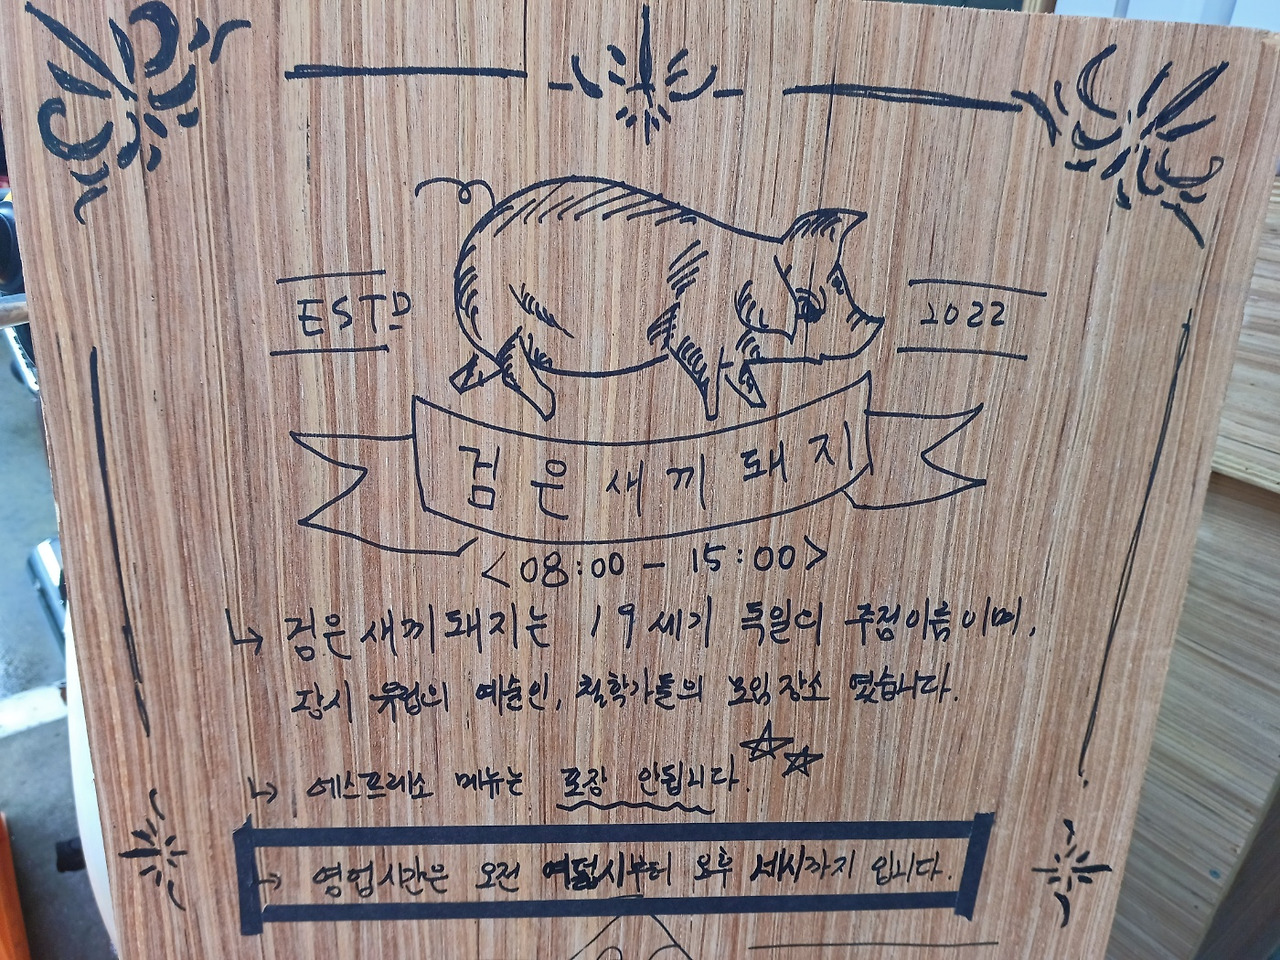 ESTD
2022
검은 새끼 돼지
<08:00 - 15:00>
↳ 검은새끼돼지는 19세기 독일의 주점이름이며,
당시 유럽의 예술인, 철학가들의 모임장소 였습니다.
↳ 에스프레소 메뉴는 포장 안됩니다.
→ 영업시간은 오전 여덟시부터 오후 세시까지 입니다.